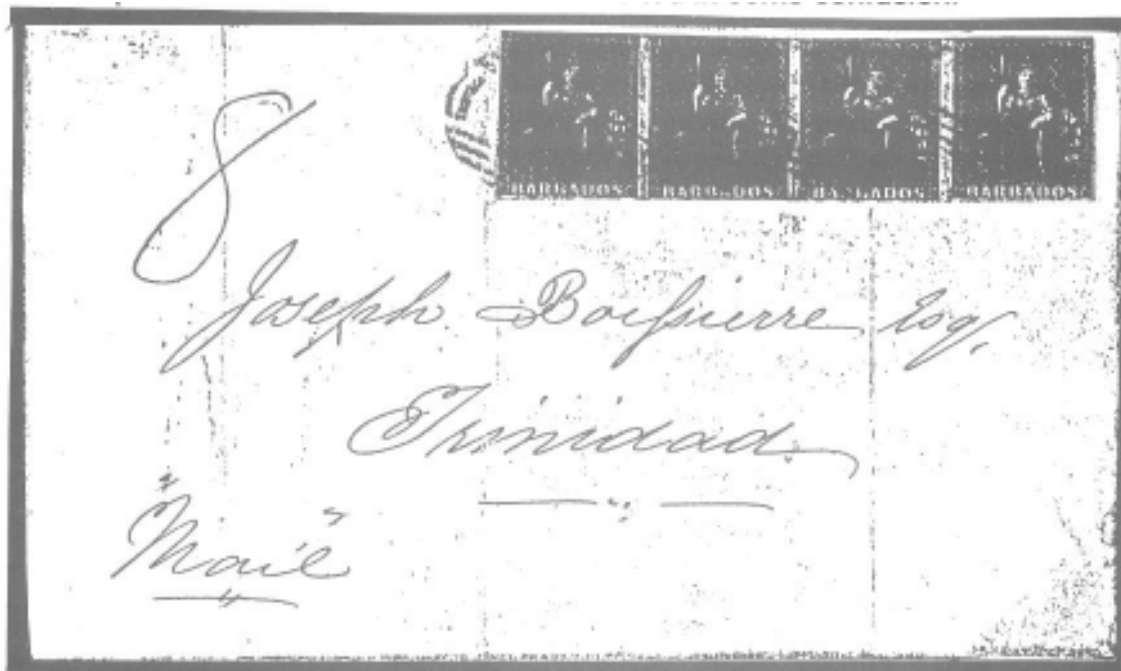 BARBADOS BARBADOS BARBADOS BARBADOS
8
Joseph Boissierre Esq.
Trinidad.
"Mail"